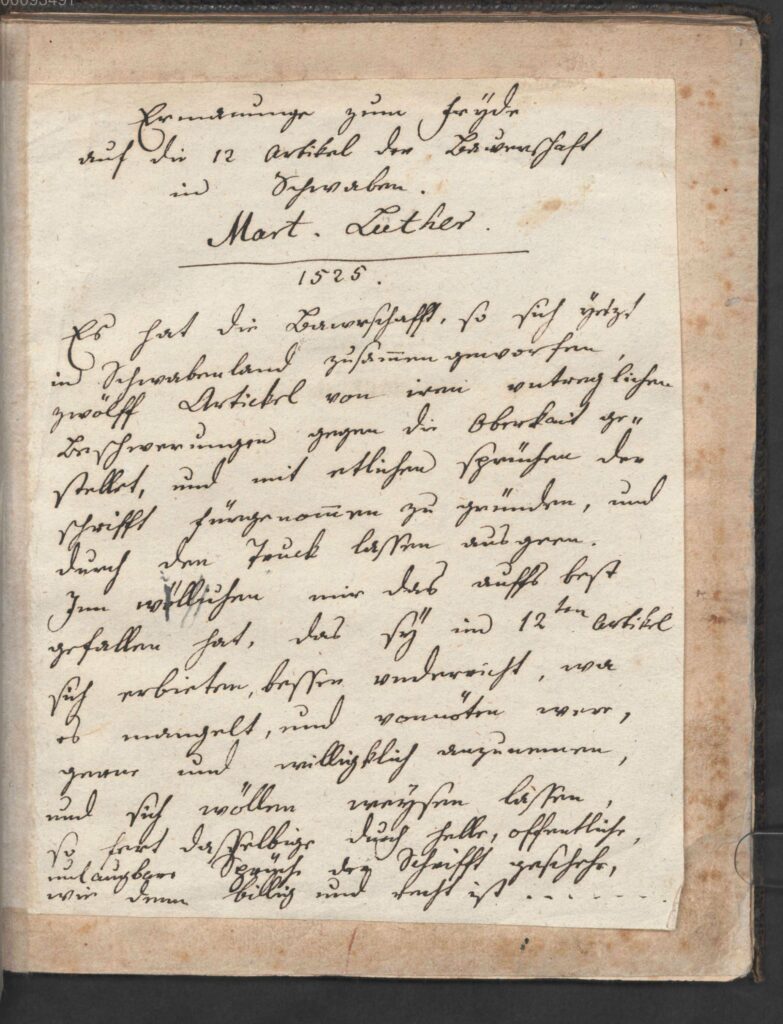 00093491
Ermanunge zum fryde
auf die 12 Artikel der Bawerschaft
in Schwaben.
Mart. Luther.
1525.
Es hat die Bawrschafft, so sich yetzt
in Schwabenland zusam̄en geworfen,
zwölff Artickel von iren vntreglichen
Beschwerungen gegen die Oberkait ge„
stellet, und mit etlichen sprüchen der
schrifft fürgenom̄en zu gründen, und
durch den Truck lassen ausgeen.
Inn wöllichen mir das auffs best
gefallen hat, das sÿ im 12ten Artikel
sich erbieten, besser vnderricht, wa
es mangelt, und vonnöten were,
gerne und willigklich anzunemen,
und sich wöllen weysen lassen,
so fert dasselbige durch helle, offentliche,
unlaugbare Sprüch der Schrifft geschehe,
wie denn billig und recht ist . . . . . . .